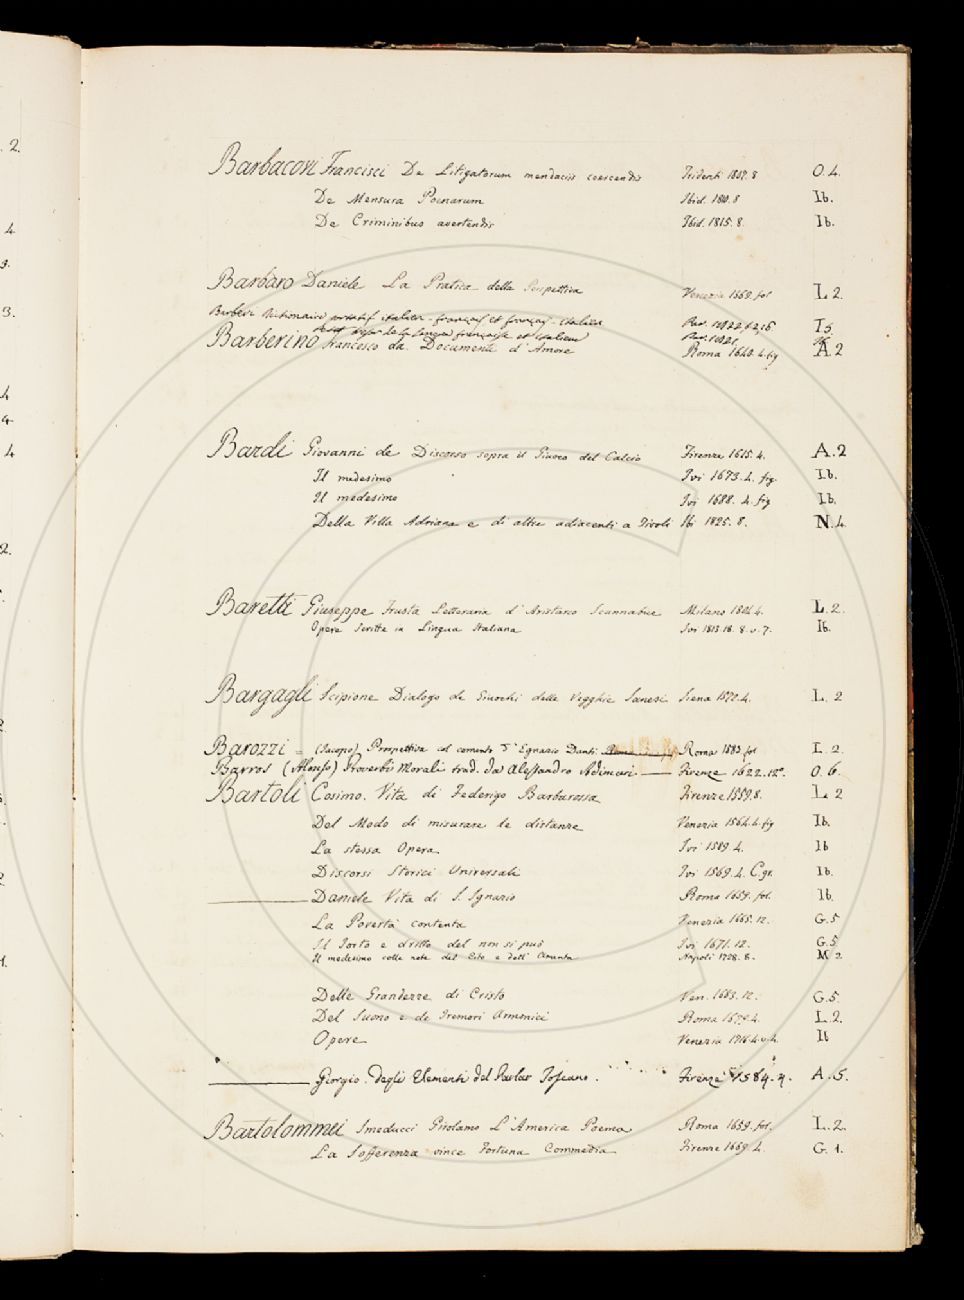 . 2.
Barbacovi Francisci De Litigatorum mendaciis coercendis Tridenti 1807. 8 O. 4.
De Mensura Poenarum Ibid. 1810. 8 Ib.
4 De Criminibus avertendis Ibid. 1815. 8. Ib.
3.
Barbaro Daniele La Pratica della Perspettiva Venezia 1569. fol L 2.
3. Barberi Dictionaire italien-français et français-italien Par. T 5
de la langue française et italien Par. 1821.
Barberino Francesco da. Documenti d'Amore Roma 1640. 4. fig A. 2
4
4
4 Bardi Giovanni de Discorso sopra il Giuoco del Calcio Firenze 1615. 4. A. 2
Il medesimo Ivi 1673. 4. fig. Ib.
Il medesimo Ivi 1688. 4. fig Ib.
2. Della Villa Adriana e di altre adiacenti a Tivoli Ibi 1825. 8. N. 4.
Baretti Giuseppe Frusta Letteraria d'Aristarco Scannabue Milano 4. L. 2.
Opere Scritte in Lingua Italiana Ivi 1813. 18. 8. v. 7. Ib.
Bargagli Scipione Dialogo de Giuochi delle Vegghie Sanesi Siena 1572. 4. L. 2
Barozzi = (Jacopo) Prospettiva col comento d'Egnazio Danti. Roma 1583 fol L. 2.
Barros (Alonso) Proverbi Morali trad. da Alessandro Adimari — Firenze 1622. 12º. O. 6.
Bartoli Cosimo. Vita di Federigo Barbarossa Firenze 1559. 8. L 2
Del Modo di misurare le distanze Venezia 1564. 4. fig Ib.
La stessa Opera Ivi 1589. 4. Ib
Discorsi Storici Universali Ivi 1569. 4. C. gr. Ib.
Daniele Vita di S. Ignazio Roma 1659. fol. Ib.
La Povertà contenta Venezia 1665. 12. G. 5
Il Torto e dritto del non si può Ivi 1671. 12. G. 5
Il medesimo colle note del Cito e dell' Amenta Napoli 1728. 8. M 2
1.
Delle Grandezze di Cristo Ven. 1683. 12. G. 5.
Del Suono e de Tremori Armonici Roma 1679. 4. L. 2.
Opere Venezia 1716. 4. v. 4. Ib
Giorgio. degli Elementi del Parlar Toscano. Firenze 1584. 4. A. 5.
Bartolommei Smeducci Girolamo L'America Poema Roma 1659. fol. L. 2.
La Sofferenza vince Fortuna Commedia Firenze 1669. 4. G. 1.